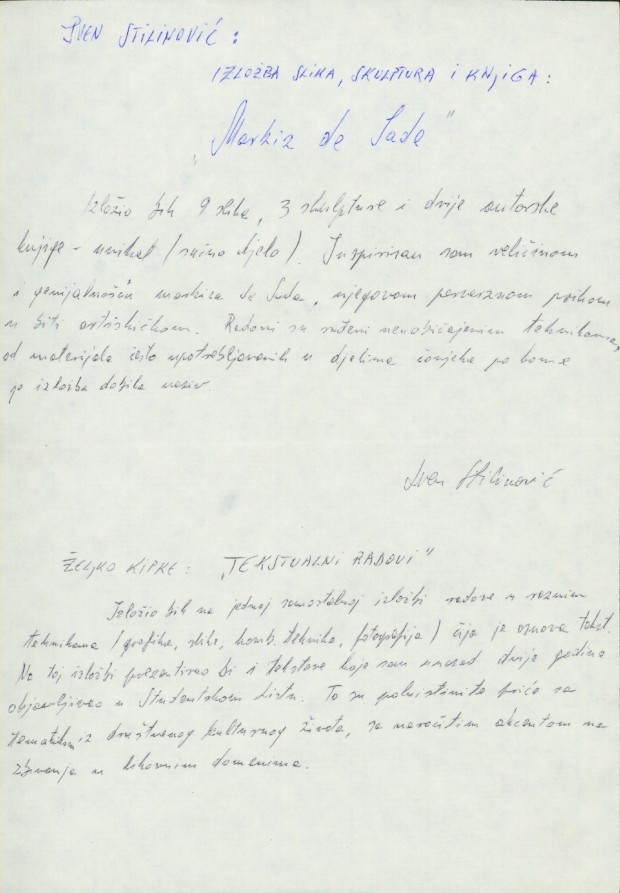 SVEN STILINOVIĆ :
IZLOŽBA SLIKA, SKULPTURA I KNJIGA :
„Markiz de Sade"
Izložio bih 9 slika, 3 skulpture i dvije autorske
knjige - unikat (ručno djelo). Inspirisan sam veličinom
i genijalnošću markiza de Sada, njegovom perverznom psihom
u biti artističkom. Radovi su rađeni neuobičajenim tehnikama,
od materijala često upotrebljavanih u djelima čovjeka po kome
je izložba dobila naziv.
Sven Stilinović
ŽELJKO KIPKE : „TEKSTUALNI RADOVI"
Izložio bih na jednoj samostalnoj izložbi radove u raznim
tehnikama (grafika, slike, komb. tehnika, fotografija) čija je osnova tekst.
Na toj izložbi prezentirao bi i tekstove koje sam unazad dvije godine
objavljivao u Studentskom listu. To su poluistinite priče sa
tematikom iz društvenog kulturnog života, sa naročitim akcentom na
zbivanja u likovnim domenima.